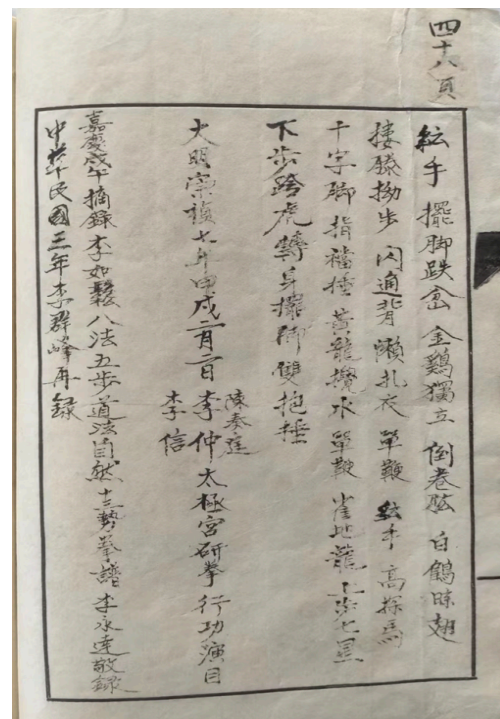 四十八頁
紜手 擺脚跌岔 金鷄獨立 倒卷肱 白鶴晾翅
摟膝拗步 閃通背 懶扎衣 單鞭 紜手 高探馬
十字脚 指襠捶 黃龍攪水 單鞭 雀地龍 上步七星
下步跨虎 轉身擺脚 雙抱捶
大明崇禎七年甲戌二月二日 陳奏庭 李仲 李信 太極宮研拳 行功演目
嘉慶戊午摘錄李如 八法五步道法自然十三勢拳譜 李永達敬錄
中華民國三年李群峰再錄